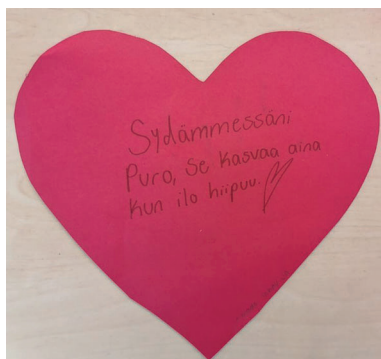 Sydämmessäni
Puro, se kasvaa aina
kun ilo hiipuu.